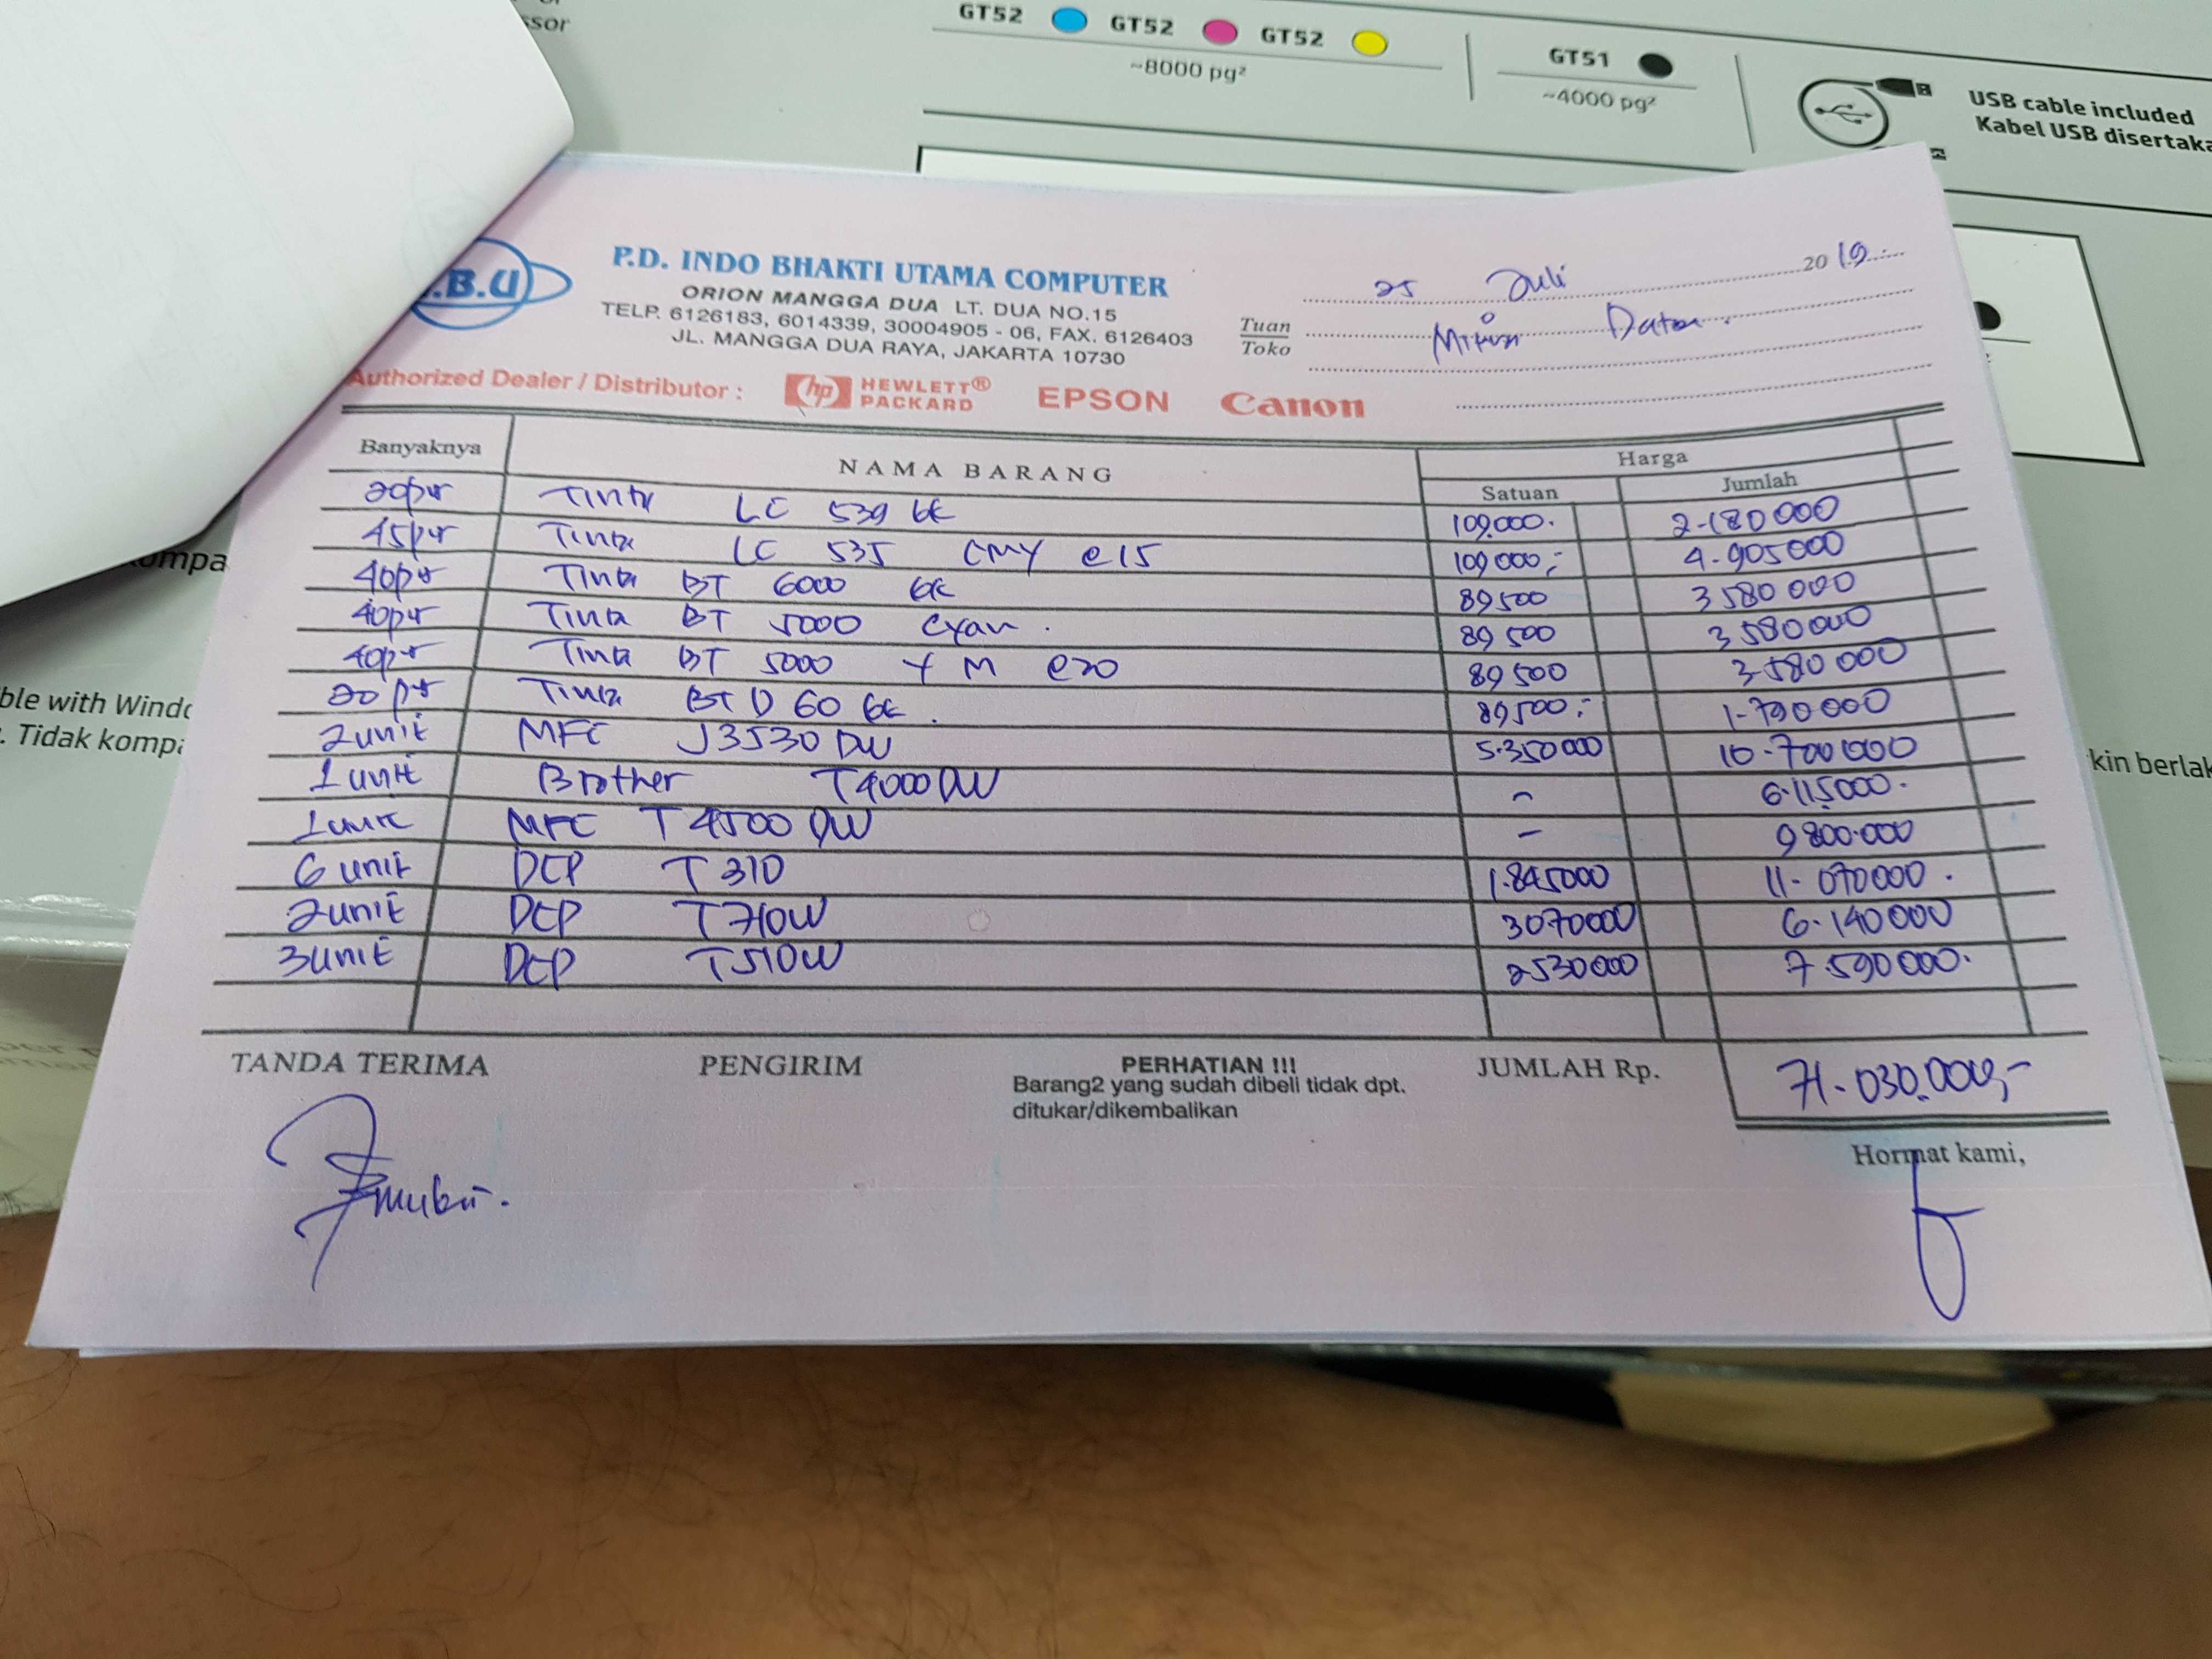 ssor
GT52 GT52 GT52
~8000 pg²
GT51
~4000 pg²
USB cable included
Kabel USB disertaka
.B.U
P.D. INDO BHAKTI UTAMA COMPUTER
ORION MANGGA DUA LT. DUA NO.15
TELP. 6126183, 6014339, 30004905 - 06, FAX. 6126403
JL. MANGGA DUA RAYA, JAKARTA 10730
25 Juli 2019
Tuan
Toko
Authorized Dealer / Distributor : hp HEWLETT® PACKARD EPSON Canon
Banyaknya NAMA BARANG Harga
Satuan Jumlah
20 Tinta LC 539 BK 109.000. 2.180000
45 Tinta LC 535 CMY @15 109000,- 4.905000
40 Tinta BT 6000 BK 89500 3580000
40 Tinta BT 5000 Cyan. 89500 3580000
40 Tinta BT 5000 Y M @20 89500 3.580000
20 Tinta BT D 60 BK. 89500,- 1.790000
2unit MFC J3530 DW 5.350000 10.700000
1 unit Brother T4000DW - 6.115000.
1unit MFC T4500 DW - 9800.000
6 unit DCP T310 1.845000 11.070000.
2unit DCP T710W 3070000 6.140000
3unit DCP T510W 2530000 7.590000.
TANDA TERIMA PENGIRIM PERHATIAN !!! JUMLAH Rp. 71.030.000,-
Barang2 yang sudah dibeli tidak dpt.
ditukar/dikembalikan
Hormat kami,
ompa
ble with Windo
. Tidak kompa
kin berlak